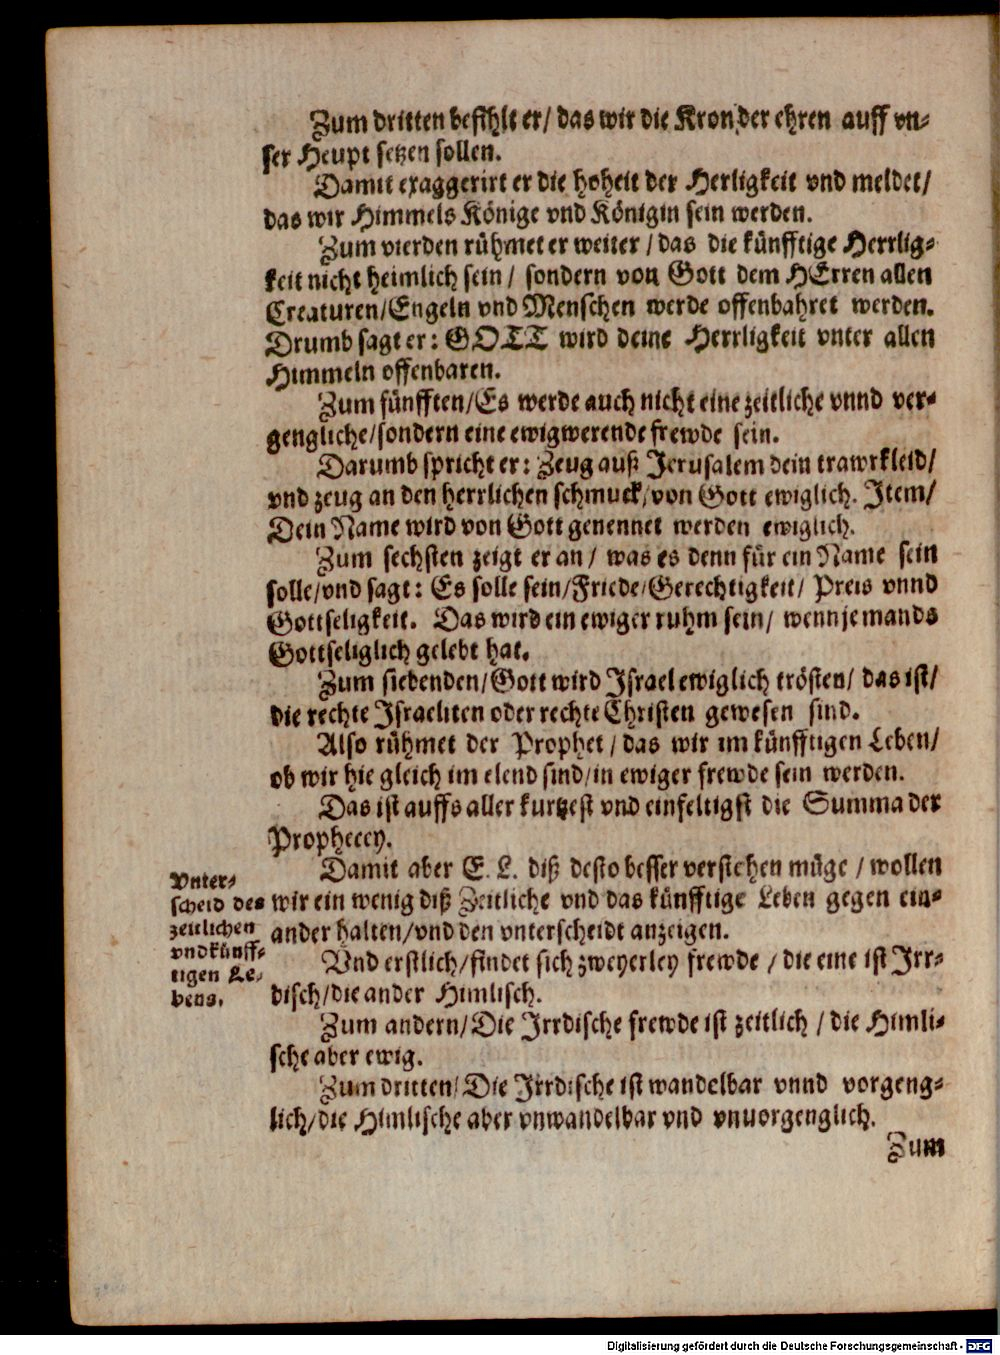 Zum dritten befihlt er/ das wir die Kron der ehren auff vn-
ser Heupt setzen sollen.
Damit exaggerirt er die hoheit der Herligkeit vnd meldet/
das wir Himmels Könige vnd Königin sein werden.
Zum vierden rühmet er weiter / das die künfftige Herrlig-
keit nicht heimlich sein / sondern von Gott dem HErren allen
Creaturen/Engeln vnd Menschen werde offenbahret werden.
Drumb sagt er: GOTT wird deine Herrligkeit vnter allen
Himmeln offenbaren.
Zum fünfften/Es werde auch nicht eine zeitliche vnnd ver-
gengliche/sondern eine ewigwerende frewde sein.
Darumb spricht er: Zeug auß Jerusalem dein trawrkleid/
vnd zeug an den herrlichen schmuck/von Gott ewiglich. Item/
Dein Name wird von Gott genennet werden ewiglich.
Zum sechsten zeigt er an / was es denn für ein Name sein
solle/vnd sagt: Es solle sein/Friede/Gerechtigkeit/ Preis vnnd
Gottseligkeit. Das wird ein ewiger ruhm sein/ wenn jemands
Gottseliglich gelebt hat.
Zum siebenden/Gott wird Israel ewiglich trösten/ das ist/
die rechte Israeliten oder rechte Christen gewesen sind.
Also rühmet der Prophet / das wir im künfftigen Leben/
ob wir hie gleich im elend sind/in ewiger frewde sein werden.
Das ist auffs aller kurtzest vnd einfeltigst die Summa der
Prophecey.
Damit aber E. L. diß desto besser verstehen müge / wollen
wir ein wenig diß Zeitliche vnd das künfftige Leben gegen ein-
ander halten/vnd den vnterscheidt anzeigen.
Vnter-
scheid des
zeitlichen
vnd künff-
tigen Le-
bens.
Vnd erstlich/findet sich zweyerley frewde / die eine ist Irr-
disch/die ander Himlisch.
Zum andern/Die Irrdische frewde ist zeitlich / die Himli-
sche aber ewig.
Zum dritten/Die Irrdische ist wandelbar vnnd vorgeng-
lich/die Himlische aber vnwandelbar vnd vnuorgenglich.
Zum
Digitalisierung gefördert durch die Deutsche Forschungsgemeinschaft - DFG